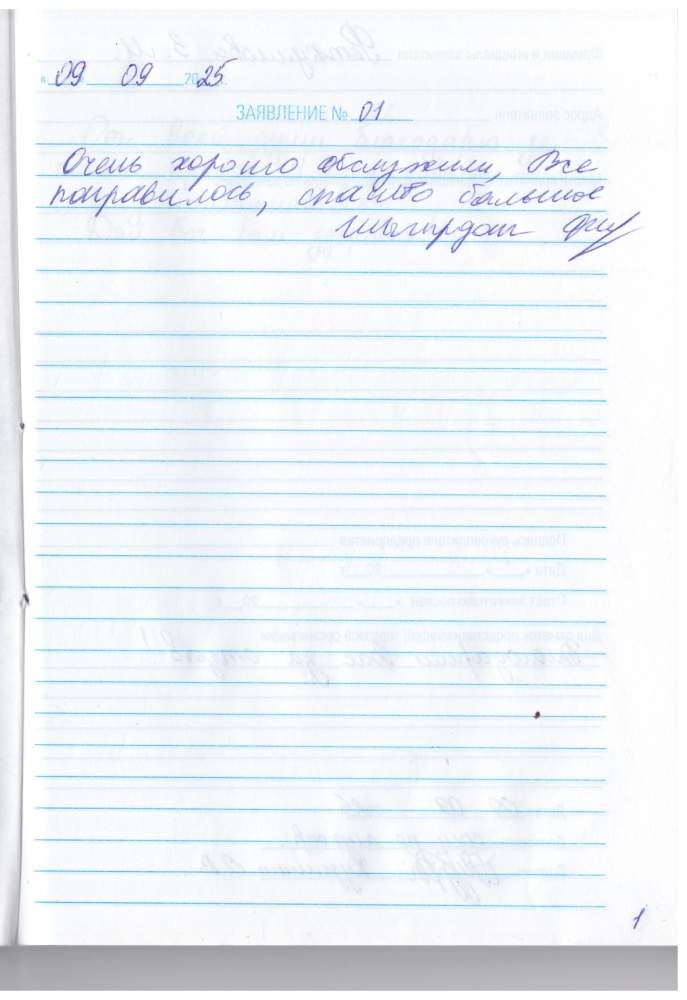 « 09 » 09 2025 г.
ЗАЯВЛЕНИЕ № 01
Очень хорошо обслужили, Все
понравилось, спасибо большое
1